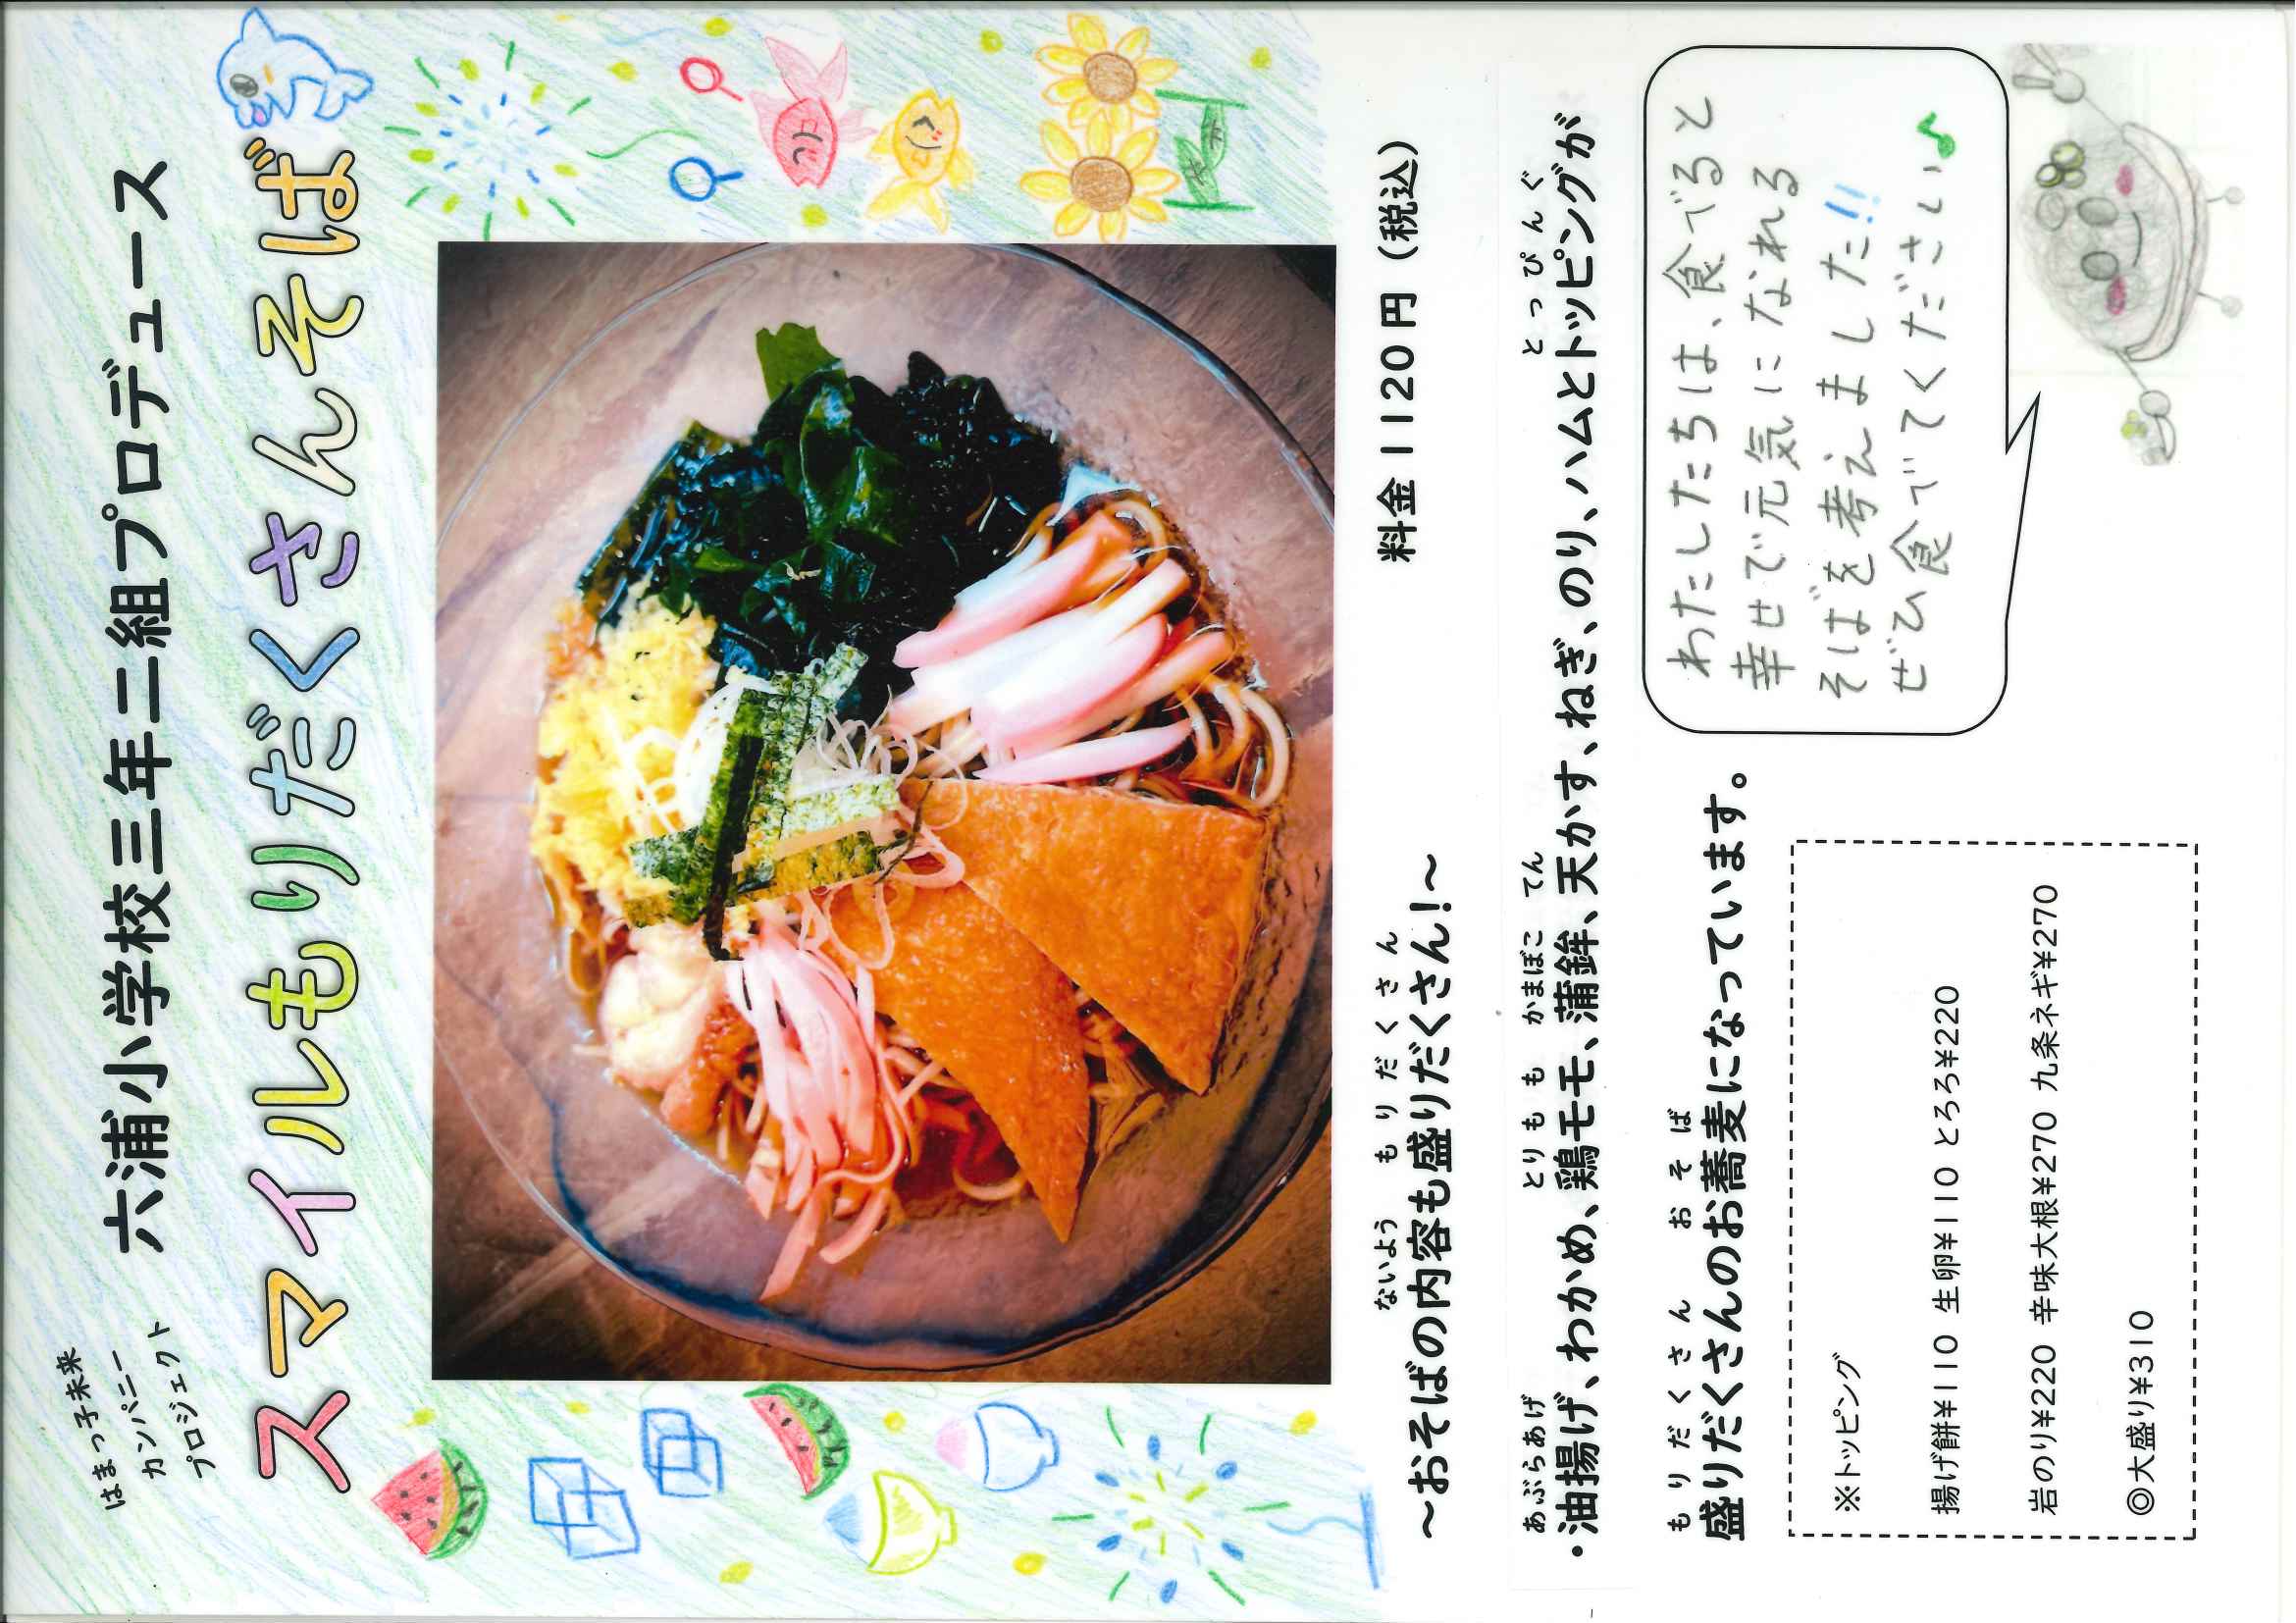 はまっ子未来
カンパニー
プロジェクト
六浦小学校三年二組プロデュース
スマイルもりだくさんそば
料金1120円（税込）
ないよう もりだくさん
～おそばの内容も盛りだくさん！～
あぶらあげ とりもも かまぼこ てん とっぴんぐ
・油揚げ、わかめ、鶏モモ、蒲鉾、天かす、ねぎ、のり、ハムとトッピングが
もりだくさん おそば
盛りだくさんのお蕎麦になっています。
わたしたちは、食べると
幸せで元気になれる
そばを考えました!!
ぜひ食べてください♪
※トッピング
揚げ餅¥110 生卵¥110 とろろ¥220
岩のり¥220 辛味大根¥270 九条ネギ¥270
◎大盛り¥310